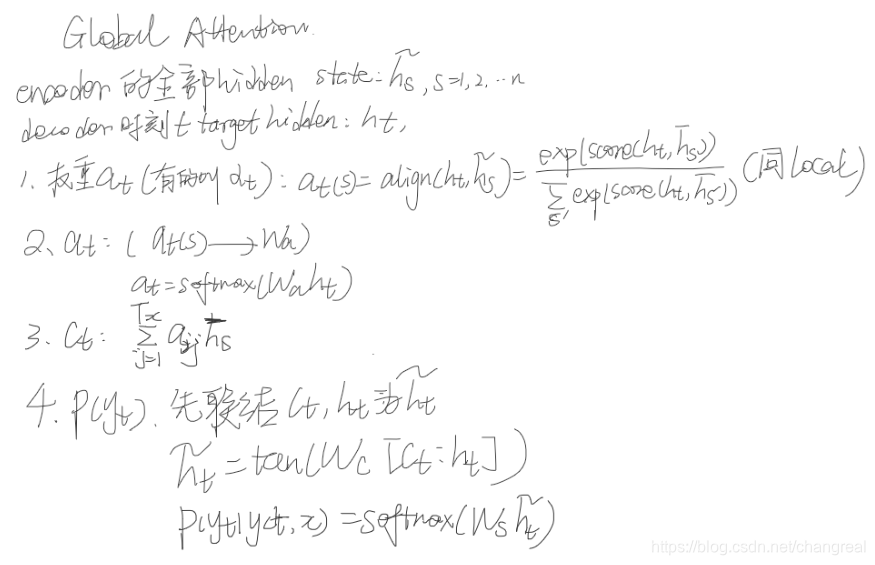 Global Attention.
encoder 的全部hidden state: h̃s, s=1,2,…n
decoder 时刻t target hidden: ht,
1. 权重at (有的叫αt): at(s)= align(ht, h̃s)= exp(score(ht, h̄s)) / Σs' exp(score(ht, h̄s')) (同local)
2、at: ( at(s)→Wa)
at=softmax(Waht)
3、Ct: Σj=1Tx aij h̄s
4. P(yt). 先联结Ct, ht为h̃t
h̃t = tan(Wc [Ct:ht])
P(yt|y<t, x) = softmax(Ws h̃t)
https://blog.csdn.net/changreal